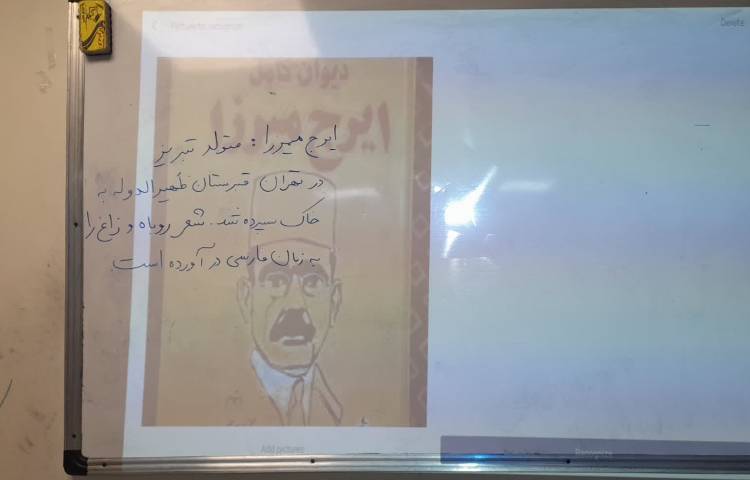 Pictures to recognize
Delete
دیوان کامل
ایرج میرزا
ایرج میرزا : متولد تبریز
در تهران قبرستان ظهیرالدوله به
خاک سپرده شد. شعر روباه و زاغ را
به زبان فارسی در آورده است.
Add pictures
Recognize